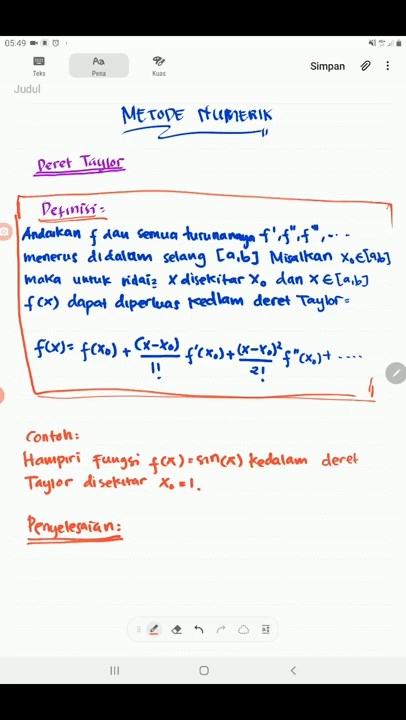 05:49
Teks
Pena
Kuas
Simpan
Judul
METODE NUMERIK
Deret Taylor
Definisi:
Andaikan f dan semua turunannya f', f'', f''', ....
menerus didalam selang [a,b] Misalkan x₀∈[a,b]
maka untuk nilai² x disekitar x₀ dan x∈[a,b]
f(x) dapat diperluas kedlam deret Taylor:
f(x) = f(x₀) + (x-x₀)/1! f'(x₀) + (x-x₀)²/2! f''(x₀) + ....
Contoh:
Hampiri Fungsi f(x)=sin(x) kedalam deret
Taylor disekitar x₀=1.
Penyelesaian: